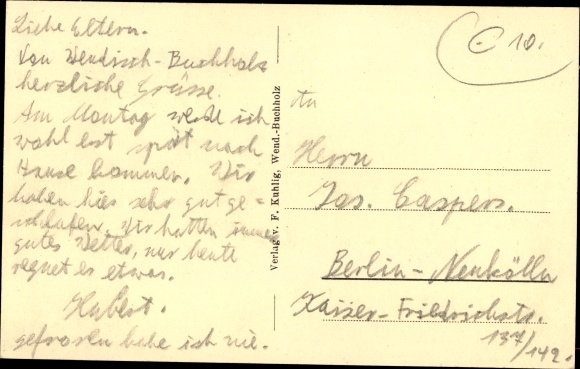 Liebe Eltern.
Von Wendisch-Buchholz
herzliche Grüsse.
Am Montag werde ich
wohl erst spät nach
Hause kommen. Wir
haben hier sehr gut ge-
schlafen. Wir hatten immer
gutes Wetter, nur heute
regnet es etwas.
Hubert.
gefroren habe ich nie.
Verlag v. F. Kuhlig, Wend.-Buchholz
10.
An
Herrn
Jos. Caspers.
Berlin-Neukölln
Kaiser-Friedrichstr.
137/142.